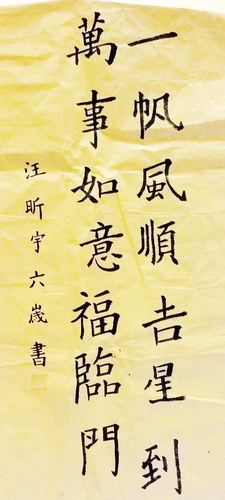 一帆風順吉星到
萬事如意福臨門
汪昕宇六歲書